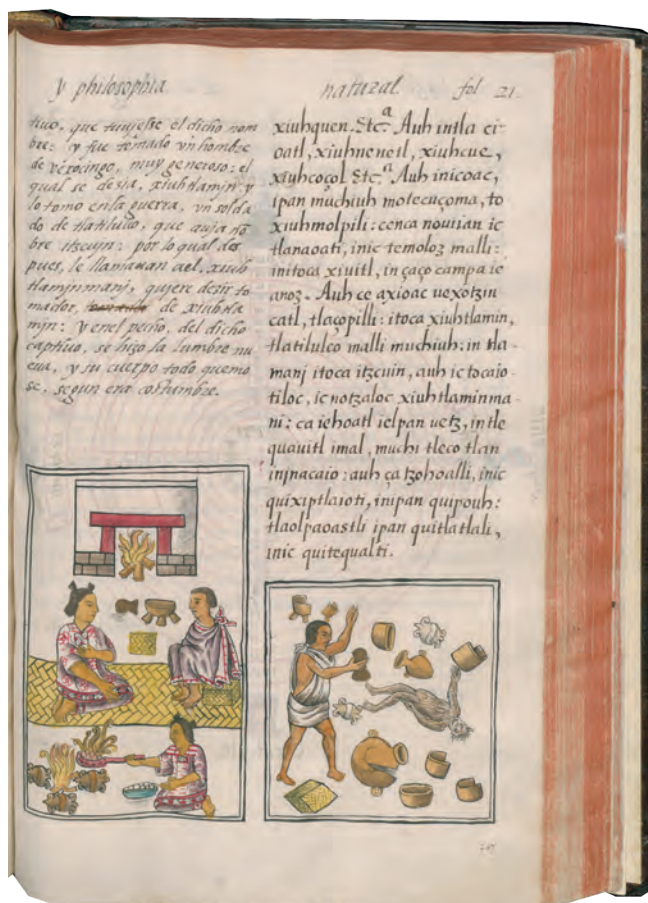 y philosophia
natural fol 21
tiuo, que tuujesse el dicho nom
bre: y fue tomado vn hombre
de vexocingo, muy generoso: el
qual se dezia, xiuhtlamjn y
lo tomo enla guerra, vn solda
do de tlatilulco, que auja nõ
bre itzcujn: por lo qual des
pues, le llamauan ael, xiuh
tlamjnmanj, qujere dezir to
mador, de xiuhtla
mjn: y enel pecho, del dicho
captiuo, se hizo la lumbre nu
eua, y su cuerpo todo quemo
se, segun era costumbre.
xiuhquen. Etc.ª Auh intla ci
oatl, xiuhnenetl, xiuhcue,
xiuhcoçol Etc.ª Auh inicoac,
ipan muchiuh motecuçoma, to
xiuhmolpili: cenca nouiian ic
tlanaoati, inic temoloz malli:
initoca xiuitl, in çaço campa ic
anoz. Auh ce axioac uexotzin
catl, tlacopilli: itoca xiuhtlamin,
tlatilulco malli muchiuh: in tla
manj itoca itzcuin, auh ic tocaio
tiloc, ic notzaloc xiuhtlaminma
ni: ca iehoatl ielpan uetz, in tle
quauitl imal, muchi tleco tlan
injnacaio: auh ça tzohoalli, inic
quixiptlaioti, inipan quipouh:
tlaolpaoastli ipan quitlatlali,
inic quitequalti.